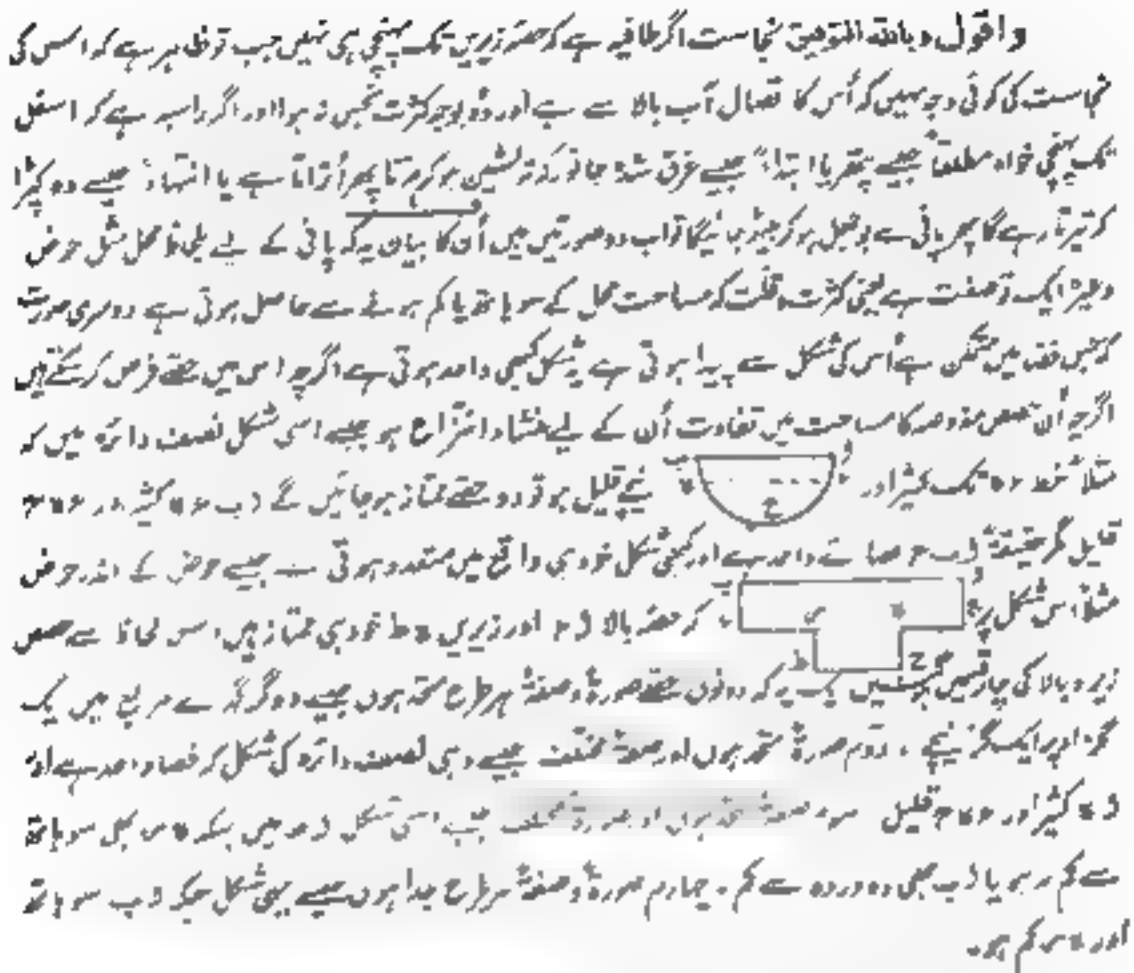 واقول وباللہ التوفیق نجاست اگر طافیہ ہے کہ حصہ زیریں تک پہنچی ہی نہیں جب تو ظاہر ہے کہ اس کی
نجاست کی کوئی وجہ نہیں کہ اُس کا اتصال آب بالا سے ہے اور وہ بوجہ کثرت نجس نہ ہوا اور اگر راسبہ ہے کہ اسفل
تک پہنچی خواہ مطلقاً جیسے پتھر یا ابتداءً جیسے غرق شدہ جانور کہ تہ نشین ہو کر مرتا پھر اُتراتا ہے یا انتہاءً جیسے وہ کپڑا
کہ تیرتا رہے گا پھر پانی سے بوجھل ہو کر بیٹھ جائیگا تو اب دو صورتیں ہیں اُن کا بیان یہ کہ پانی کے لیے بلحاظ محل مثل حوض
وغیرہ ایک تو صفت ہے یعنی کثرت وقلّت کہ مساحت محل کے سو ہاتھ یا کم ہونے سے حاصل ہوتی ہے دوسری صورت
کہ جس فضا میں متمکن ہے اُس کی شکل سے پیدا ہوتی ہے یہ شکل کبھی واحد ہوتی ہے اگرچہ اس میں حصے فرض کرسکتے ہیں
اگرچہ اُن حصص مفروضہ کا مساحت میں تفاوت اُن کے لیے منشاء انتزاع ہو جیسے اسی شکل نصف دائرہ میں کہ
مثلاً خط ء ہ تک کثیر اور نیچے قلیل ہو تو دو حصے ممتاز ہوجائیں گے ا ب ء ہ کثیر اور ء ہ ح
قلیل مگر حقیقۃً ا ب ح فضائے واحد ہے اور کبھی شکل خود ہی واقع میں متعدد ہوتی ہے جیسے حوض کے اندر حوض
مثلاً اس شکل پر کہ حصہ بالا ا ء اور زیریں ہ ط خود ہی ممتاز ہیں اس لحاظ سے حصص
زیر و بالا کی چار قسمیں ہوئیں یک یہ کہ دونوں حصے صورۃً وصفۃً ہر طرح متحد ہوں جیسے دو گز گہرے مربع میں یک
گز اوپر ایک گز نیچے ، دوم صورۃً متحد ہوں اور صفۃً مختلف جیسے وہی نصف دائرہ کی شکل کہ فضا واحد ہے اور
ا ہ کثیر اور ء ہ ح قلیل سوم صفۃً متحد ہوں اور صورۃً مختلف جیسے اسی شکل میں جبکہ ہ س بھی سو ہاتھ
سے کم نہ ہو یا ا ب بھی دہ در دہ سے کم ، چہارم صورۃً وصفۃً ہر طرح جدا ہوں جیسے یہی شکل جبکہ ا ب سو ہاتھ
اور ہ س کم ہو۔